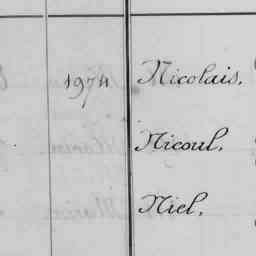 1974 Nicolais,
Nicoul,
Niel,